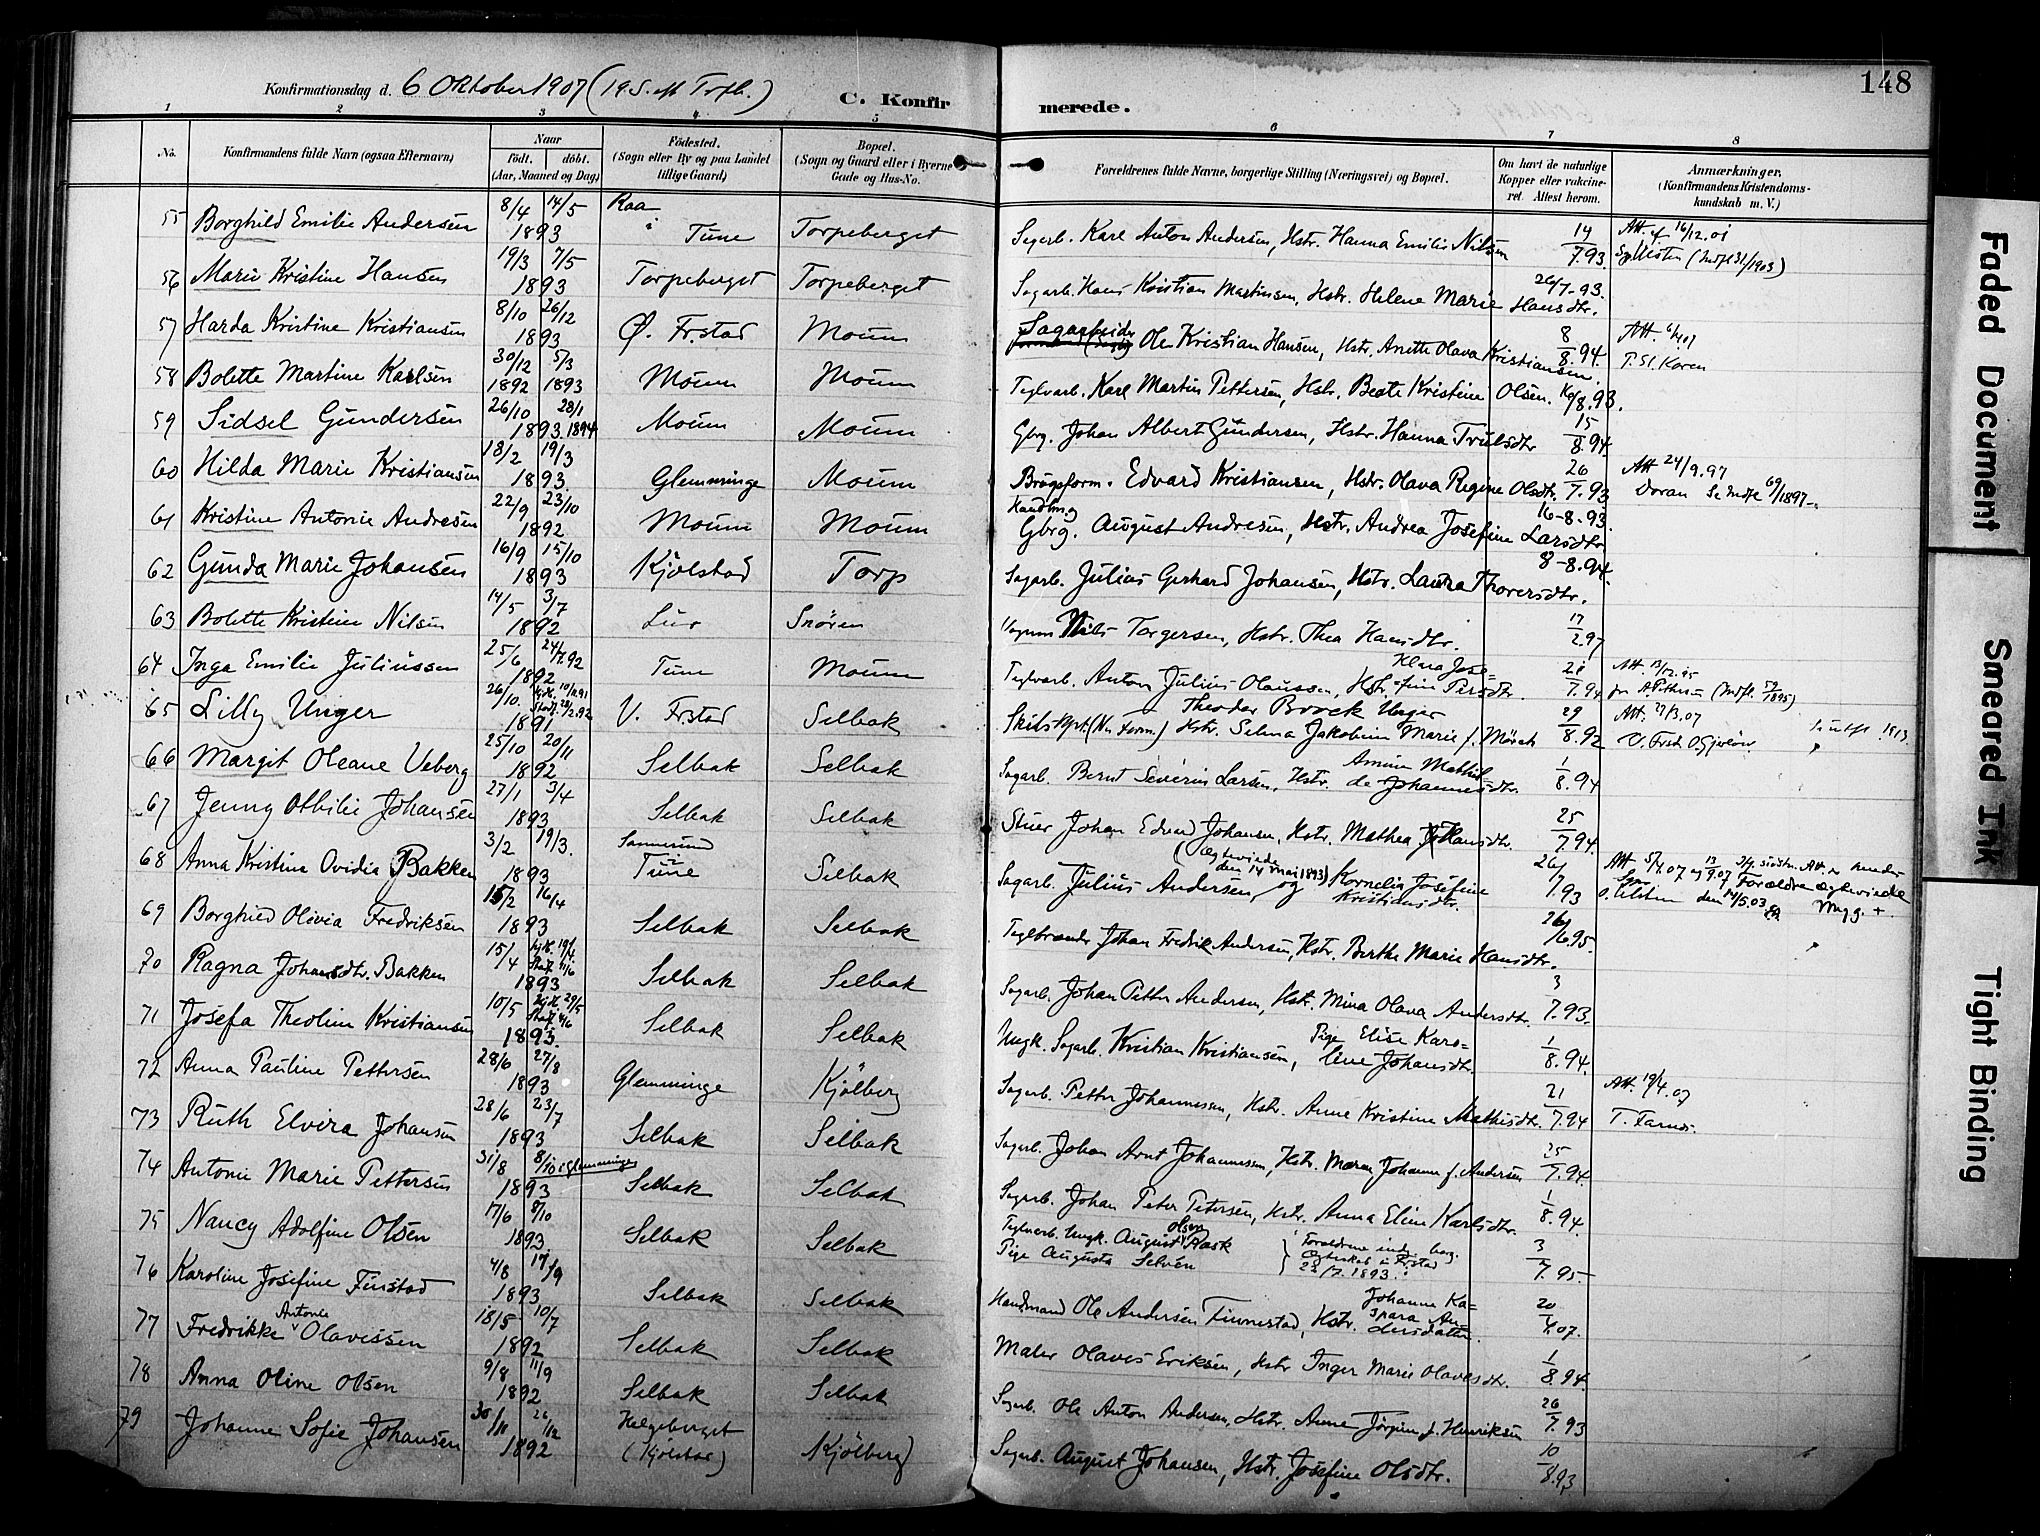 148
Konfirmationsdag d. 6 Oktober 1907 (19 S. eft Trfb.) C. Konfirmerede.
1 2 3 4 5 6 7 8
No. Konfirmandens fulde Navn (ogsaa Efternavn) Naar født. døbt. (Aar, Maaned og Dag) Fødested. (Sogn eller By og paa Landet tillige Gaard) Bopæl. (Sogn og Gaard eller i Byerne Gade og Hus-No. Forældrenes fulde Navne, borgerlige Stilling (Næringsvei) og Bopæl. Om havt de naturlige Kopper eller vakcineret. Attest herom. Anmærkninger. (Konfirmandens Kristendomskundskab m. V.)
55 Borghild Emilie Andersen 8/4 14/5 1893 Raa i Tune Torpeberget Sagarb. Karl Anton Andersen, Hstr. Hanna Emilie Nilsen 14/7.93. Att. 16/12.01
56 Marie Kristine Hansen 19/3 7/5 1893 Torpeberget Torpeberget Sagarb. Hans Kristian Martinsen, Hstr. Helene Marie Hansdtr. 26/7-93.
57 Harda Kristine Kristiansen 8/10 26/12 1893 Ø. Frstad Moum Sagarbeider Ole Kristian Hansen, Hstr. Anette Olava Kristiansen. 8/8.94. Att.
58 Bolette Martine Karlsen 30/12 1892 5/3 1893 Moum Moum Teglvarb. Karl Martin Pettersen, Hstr. Beate Kristine Olsen. 16/8.93.
59 Sidsel Gundersen 26/10 1893 28/1 1894 Moum Moum Gbrg. Johan Albert Gundersen, Hstr. Hanna Trulsdtr 15/8.94.
60 Hilda Marie Kristiansen 18/2 19/3 1893 Glemminge Moum Brugsform. Edvard Kristiansen, Hstr. Olava Regine Olsdtr. 26/7.93 Att 24/9.97
61 Kristine Antonie Andresen 22/9 23/10 1892 Moum Moum Gbrg. August Andresen, Hstr. Andrea Josefine Larsdtr 16-8-93.
62 Gunda Marie Johansen 16/9 15/10 1893 Kjølstad Torp Sagarb. Julius Gerhard Johansen, Hstr. Laura Thoversdtr. 8-8.94.
63 Bolette Kristine Nilsen 14/5 3/7 1892 Lur Snøren Nils Torgersen, Hstr. Thea Hansdtr. 17/2.97
64 Inga Emilie Juliussen 25/6 24/7.92 1892 Tune Moum Teglvarb. Anton Julius Olaussen, Hstr. Klara Josefine Persdtr. 21/7.94 Att. 13/12.95
65 Lilly Unger 26/10. 1891 V. Frstad Selbak Theodor Brock Unger Hstr. Selma Jakobine Marie f. Mørch 29/8.92 Att. 27/3.07
66 Margit Oleane Veberg 25/10 20/11 1892 Selbak Selbak Sagarb. Bernt Severin Larsen, Hstr. Amine Mathilde Johannesdtr. 1/8.94
67 Jenny Othilie Johansen 27/1 3/4 1893 Selbak Selbak Stuer Johan Edvard Johansen, Hstr. Mathea Hansdtr. 25/7.94.
68 Anna Kristina Ovidia Bakken 3/2 19/3. 1893 Sannesund i Tune Selbak Sagarb. Julius Andersen, (Ægteviede den 14 mai 1893) og Kornelia Josefine Kristiansdtr. 26/7.93
69 Borghild Olivia Fredriksen 15/2 16/4 1893 Selbak Selbak Teglbrænder Johan Fredrik Andersen, Hstr. Berthe Marie Hansdtr. 26/6 95.
70 Ragna Johansdtr. Bakken 15/4 1893 Selbak Selbak Sagarb. Johan Petter Andersen, Hstr. Mina Olava Andersdtr. 3/7.93.
71 Josefa Theoline Kristiansen 10/5 1893. Selbak Selbak Ungk. Sagarb. Kristian Kristiansen, Pige Elise Karoline Johansdtr. 1/8.94.
72 Anna Pauline Pettersen 28/6 27/8 1893 Glemminge Kjølberg Sagarb. Petter Johannessen, Hstr. Anne Kristine Mathisdtr. 21/7.94 Att. 19/4.07
73 Ruth Elvira Johansen 28/6 23/7 1893 Selbak Selbak Sagarb. Johan Arnt Johannessen, Hstr. Maren Johanne f. Andersen 25/7.94.
74 Antonie Marie Pettersen 31/8 8/10 i Glemminge 1893 Selbak Selbak Sagarb. Johan Peter Petersen, Hstr. Anna Eline Karlsdtr. 1/8.94.
75 Nancy Adolfine Olsen 17/6 8/10 1893. Selbak Selbak Teglverb. Ungk. August Olsen Aask Pige Augusta Selvén 3/7.95.
76 Karoline Josefine Finstad 4/8 17/9 1893 Selbak Selbak Handmand Ole Andersen Finnestad, Hstr. Johanne Kaspara Andersdatter. 20/4.07.
77 Fredrikke Antonie Olavessen 18/5 10/7 1892 Selbak Selbak Maler Olaves Eriksen, Hstr Inger Marie Olavesdtr. 1/8.94.
78 Anna Oline Olsen 9/8 11/9 1892 Selbak Selbak Sagarb. Ole Anton Andersen, Hstr. Anne Jørgine f. Henriksen 26/7.93
79 Johanne Sofie Johansen 30/11 26/12 1892 Helgeberget (Kjølstad) Kjølberg Sagarb. August Johansen, Hstr. Josefine Olsdtr. 10/8.93
Faded Document
Smeared Ink
Tight Binding